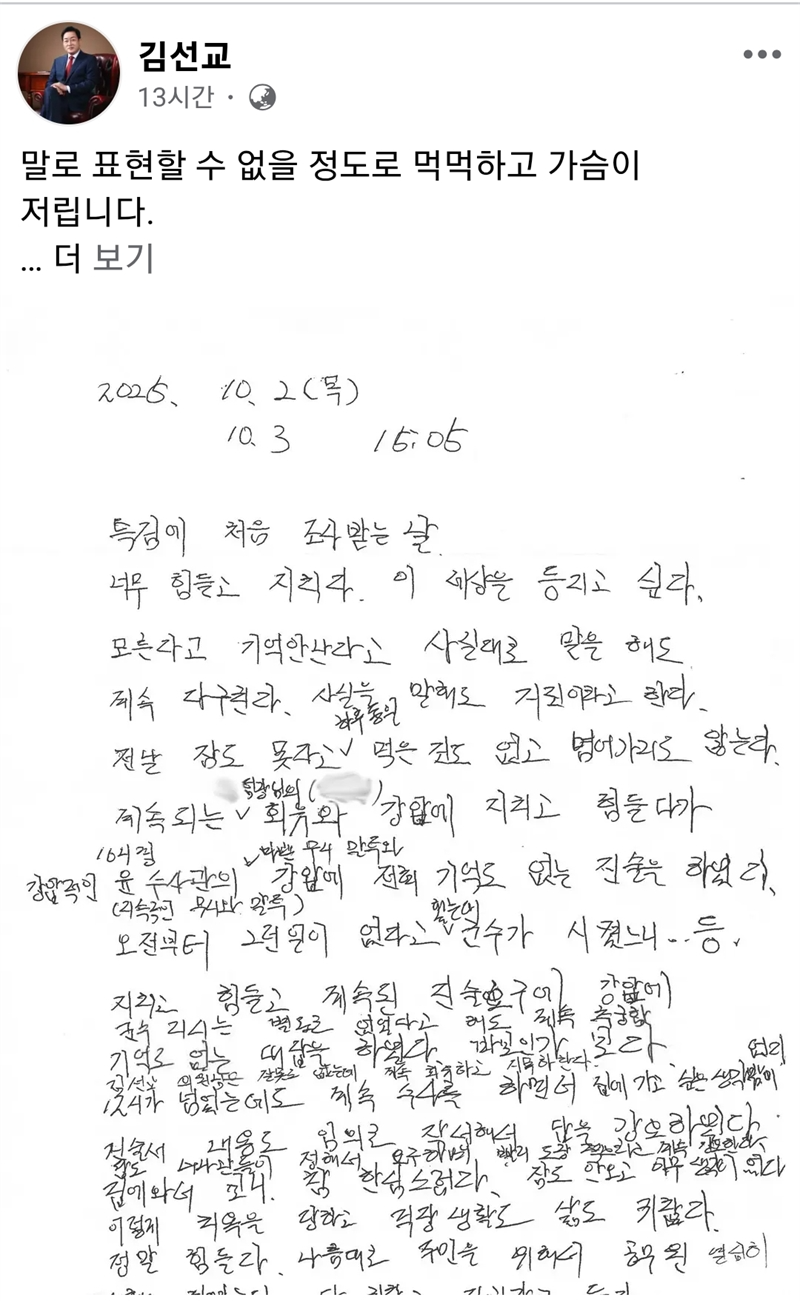 김선교
13시간 ·
말로 표현할 수 없을 정도로 먹먹하고 가슴이
저립니다.
... 더 보기
2025. 10. 2 (목)
10. 3 15:05
특검에 처음 조사받는 날.
너무 힘들고 지친다. 이 세상을 등지고 싶다.
모른다고 기억안난다고 사실대로 말을 해도
계속 다구친다. 사실을 말해도 거짓이라고 한다.
하루종일
전날 잠도 못자고 ∨ 먹은 것도 없고 넘어가지도 않는다.
팀장님의 ( )
계속되는 ∨ 회유와 강압에 지치고 힘들다가
10시쯤 ∨ 무시 말투와
강압적인 윤 수사관의 강압에 전혀 기억도 없는 진술을 하였다.
(지속적인 무시와 말투)
오전부터 그런일이 없다고 ∨ 군수가 시켰느니.. 등.
지치고 힘들고 계속된 진술요구에 강압에
군수 지시는 별도로 없었다고 해도 계속 추궁함
기억도 없는 대답을 하였다. 바보인가 보다.
김선교 의원님은 잘못도 없는데 계속 회유하고 지목하란다.
12시가 넘었는데도 계속 수사를 하면서 집에 가고 싶은 생각밖에 없다
진술서 내용도 임의로 작성해서 답을 강요하였다.
수사관들이 정해서 요구하며 빨리 도장 찍으라고 계속 강요한다
집에와서 보니 참 한심스럽다. 잠도 안오고 아무 생각이 없다
이렇게 치욕을 당하고 직장생활도 삶도 귀찮다.
정말 힘들다. 나름대로 주민을 위해서 공무원 열심히